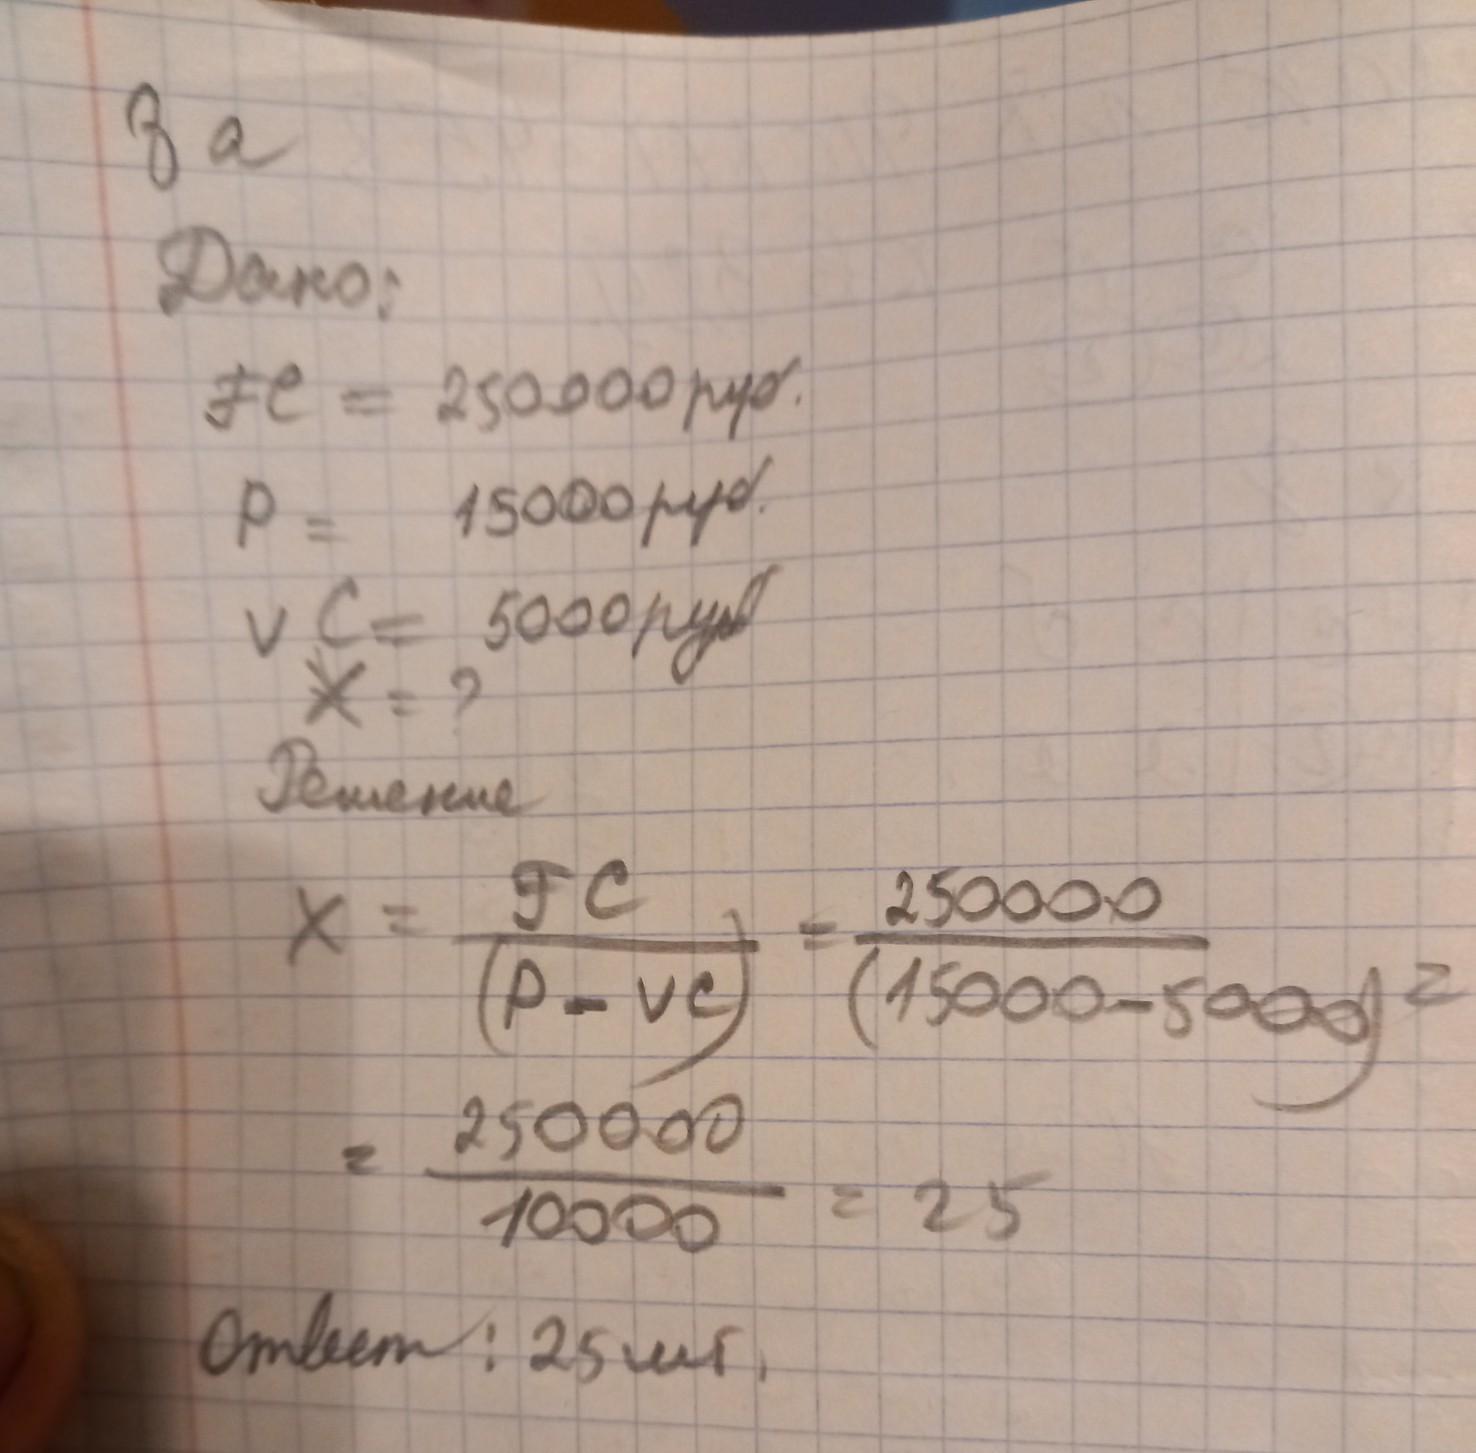 За
Дано:
FC = 250000 руб.
P = 15000 руб.
VC = 5000 руб
X = ?
Решение
X = FC / (P - VC) = 250000 / (15000 - 5000) =
= 250000 / 10000 = 25
Ответ: 25 шт.